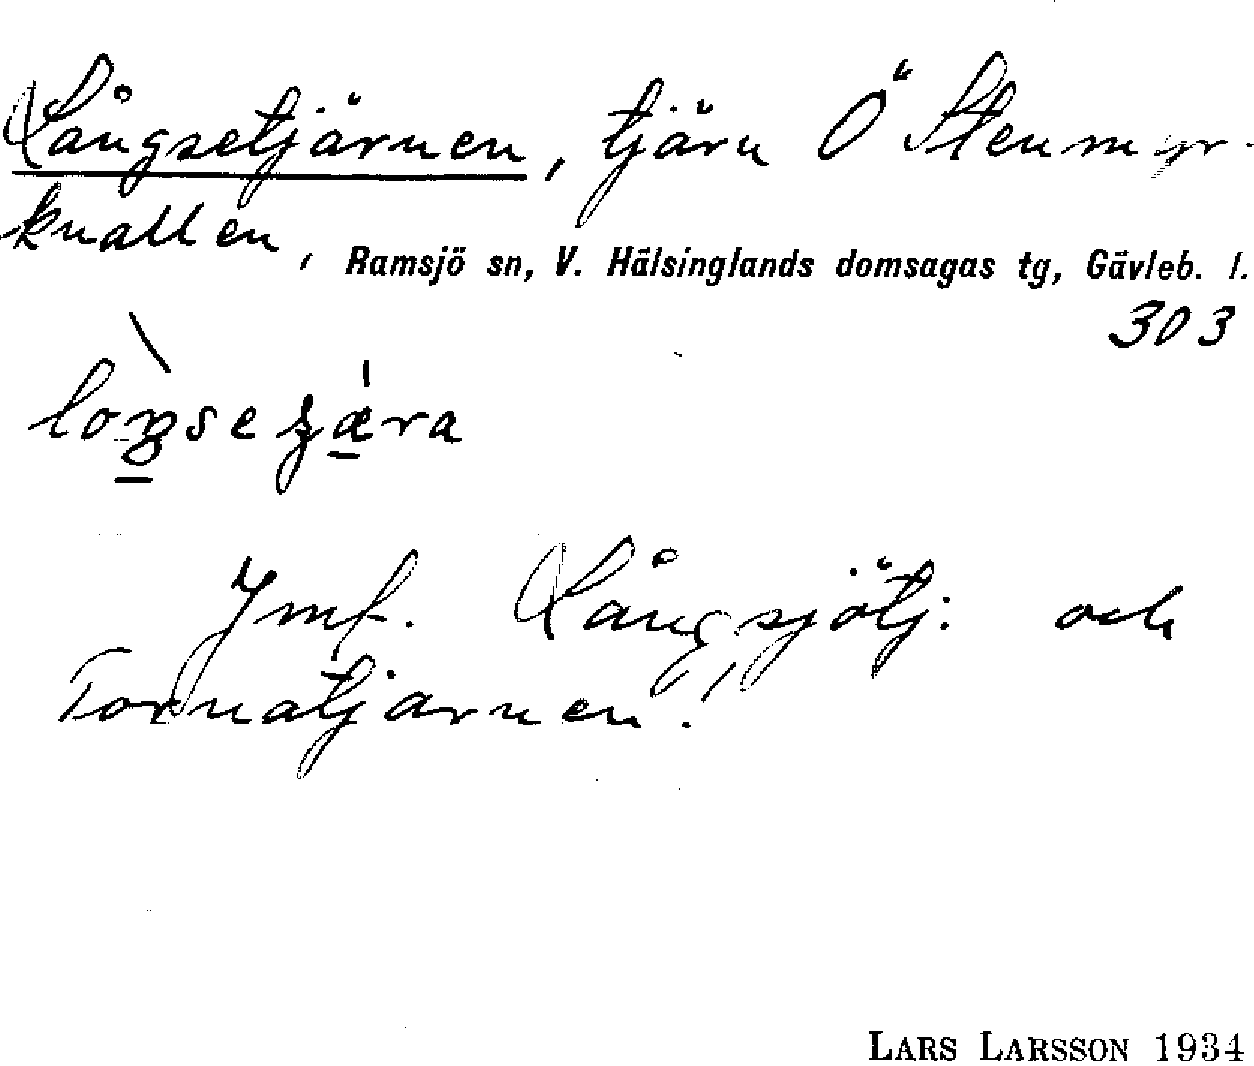 Långsetjärnen, tjärn Ö Stenmyr-
knallen, Ramsjö sn, V. Hälsinglands domsagas tg, Gävleb. l.
303
Jmf. Långsjötj: och
Tornatjärnen.!
LARS LARSSON 1934